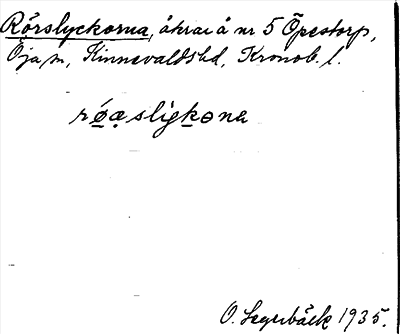 Rörslyckorna, åkrar å nr 5 Öpestorp,
Öja sn, Kinnevalds hd, Kronob. l.
røæsligkona
O. Segerbäck 1935.